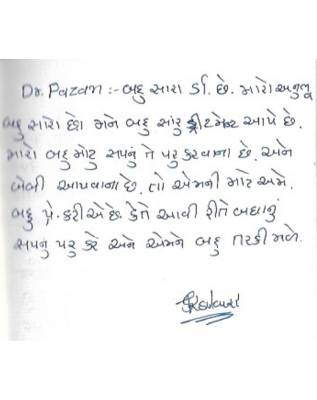 Dr. Pazan :- બહુ સારા ડૉ. છે. મારો અનુભ
બહુ સારો છે. મને બહુ સારુ ટ્રીટમેન્ટ આપે છે.
મારા બહુ મોટુ સપનું તે પરુ કરવાના છે. અને
બેબી આપવાના છે. તો એમની માટે અમે
બહુ પ્રે. કરીએ છે. કેતે આવી રીતે બધાનું
સપનુ પરુ કરે અને એમને બહુ તરકી મળે.